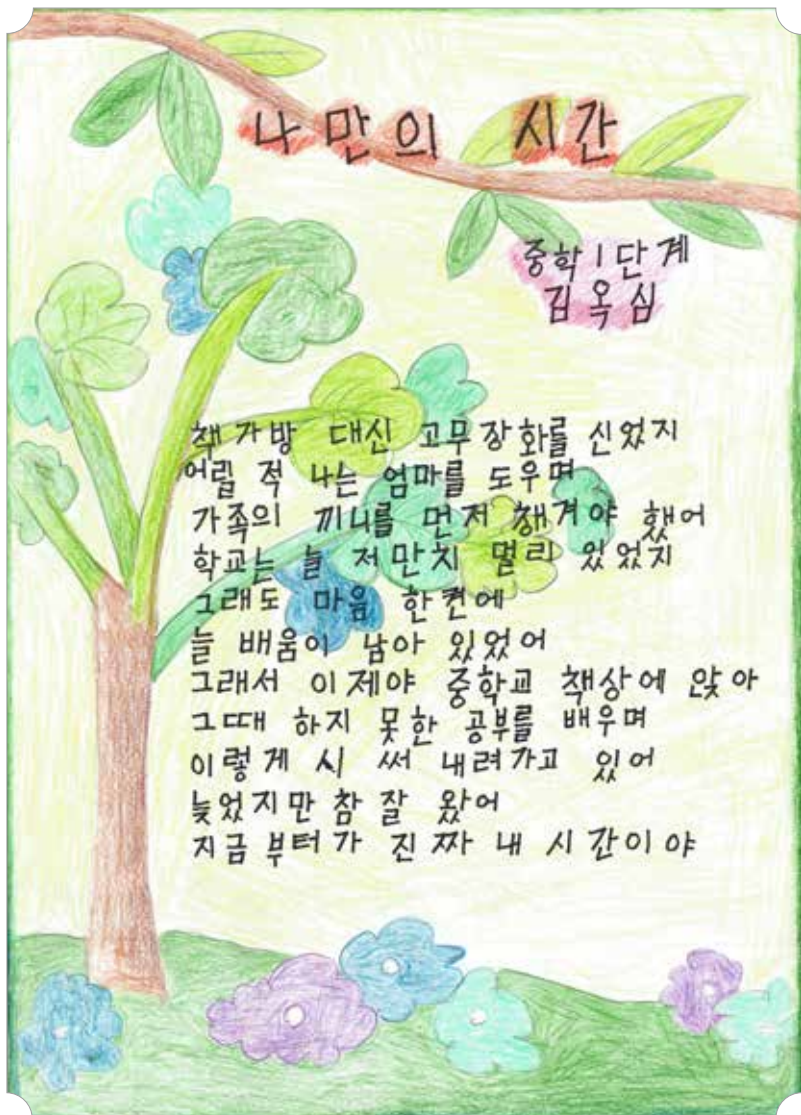 나만의 시간
중학 1단계
김옥심
책가방 대신 고무장화를 신었지
어릴 적 나는 엄마를 도우며
가족의 끼니를 먼저 챙겨야 했어
학교는 늘 저만치 멀리 있었지
그래도 마음 한켠에
늘 배움이 남아 있었어
그래서 이제야 중학교 책상에 앉아
그때 하지 못한 공부를 배우며
이렇게 시 써 내려가고 있어
늦었지만 참 잘 왔어
지금부터가 진짜 내 시간이야